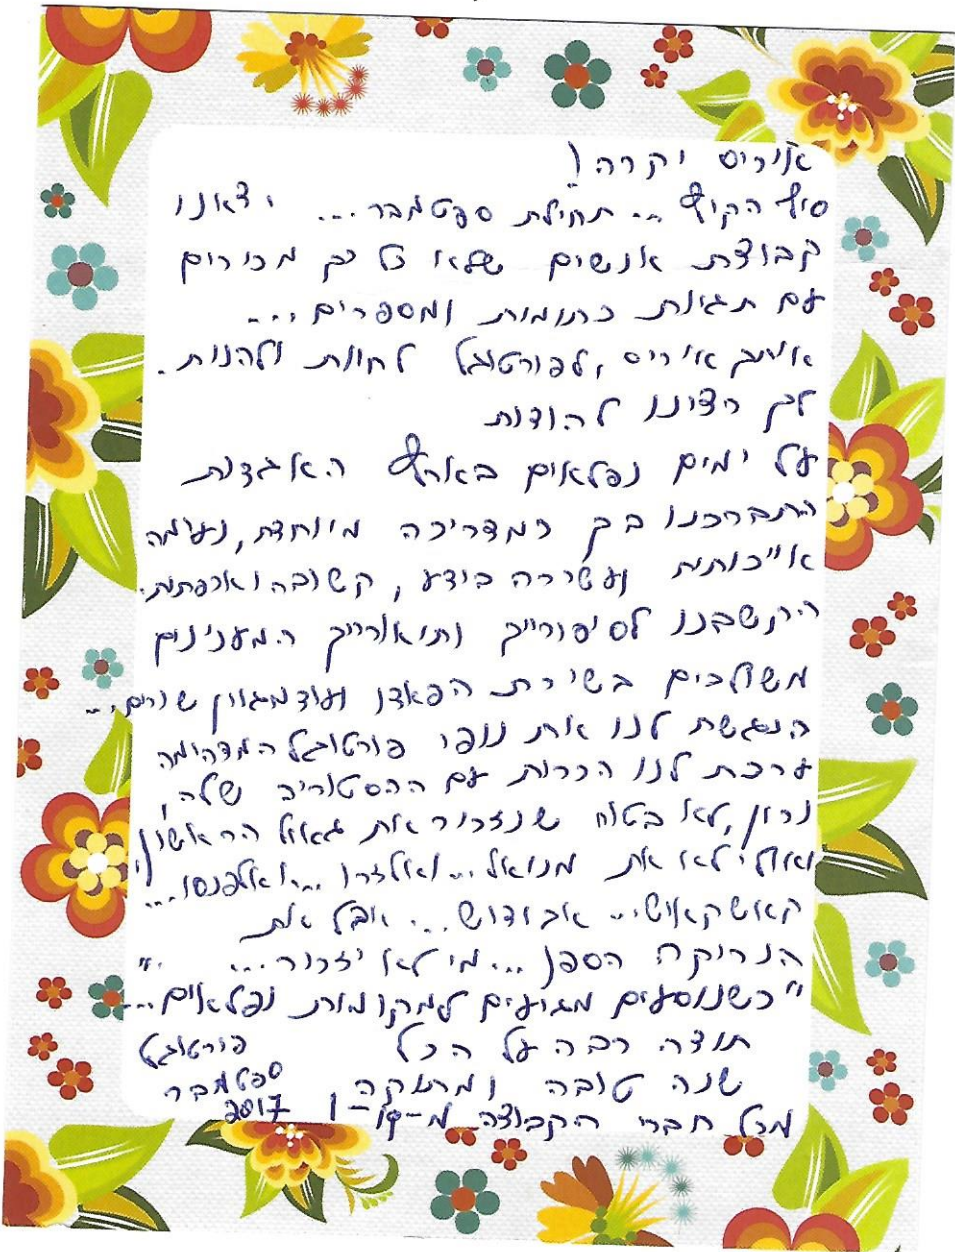 איריס יקרה!
סוף הקיץ... תחילת ספטמבר... יצאנו
קבוצת אנשים שלא כל כך מכירים
עם תגאות כתומות ומספרים...
איתך איריס, לפורטוגל לחוות ולהנות.
לכן רצינו להודות
על ימים נפלאים בארץ האגדות
התברכנו בך כמדריכה מיוחדת, נעימה
אייכותית ועשירה בידע, קשובה ואכפתית.
הקשבנו לסיפורייך ותיאורייך המענינים
משולבים בשירת הפאדו ועוד מגוון שירים...
הנגשת לנו את נופי פורטוגל המדהימה
ערכת לנו הכרות עם ההסטוריה שלה,
נכון, לא בטוח שנזכור את הראשון
ואולי לא את מנואל... ואלפונסו...
אבל את
הנריקה הספן... מי לא יזכור...
"כשנוסעים מגיעים למקומות נפלאים..."
תודה רבה על הכל
שנה טובה ומתוקה
מכל חברי הקבוצה
פורטוגל
ספטמבר
2017